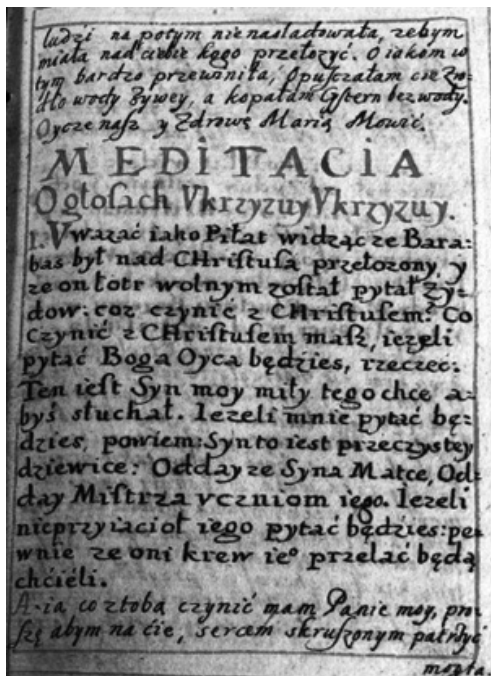 ludzi na potym nie nasladowała, zebym
miała nad ciebie kogo przełozyć. O iakom w
tym bardzo przewiniła, Opuſzczałam cie Zro-
dło wody Zywey, a kopałam Cystern bez wody.
Oycze naſz y Zdrową Marią Mowić.
MEDITACIA
O głosach Vkrzyzuy Vkrzyzuy.
1. Vwazać iako Piłat widząc ze Bara:
bas był nad CHriſtuſa przełozony, y
ze on łotr wolnym zoſtał pytał zy-
dow: coz czynić z CHriſtusem? Co
czynić z CHriſtusem maſz, iezeli
pytać Boga Oyca będzies, rzecze:
Ten ieſt Syn moy miły tego chce a-
byś słuchał. Iezeli mnie pytać bę-
dzies, powiem: Syn to ieſt przeczyſtey
dziewice: Odday ze Syna Matce, Od-
day Miſtrza vczniom iego. Iezeli
nieprzyiacioł iego pytać będzies: pe-
wnie ze oni krew ieº przelać będą
chćieli.
A ia co ztobą czynić mam Panie moy, pro-
ſzę abym na ćie, sercem skruſzonym patrzyć
mogła.